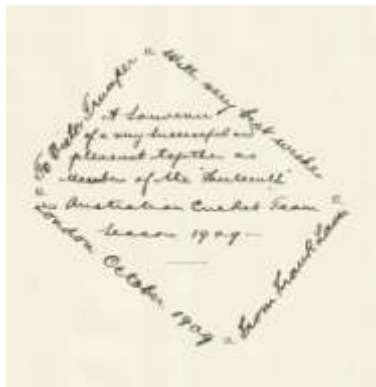 To Victor Trumper
with very best wishes
A Souvenir
of a very successful and
pleasant together as
member of the "thirteenth"
Australian Cricket Team
Season 1909
London October 1909
From Frank Laver